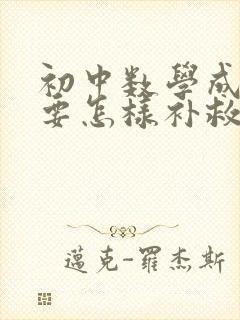 初中数學成
要怎樣补救
邁克-羅杰斯